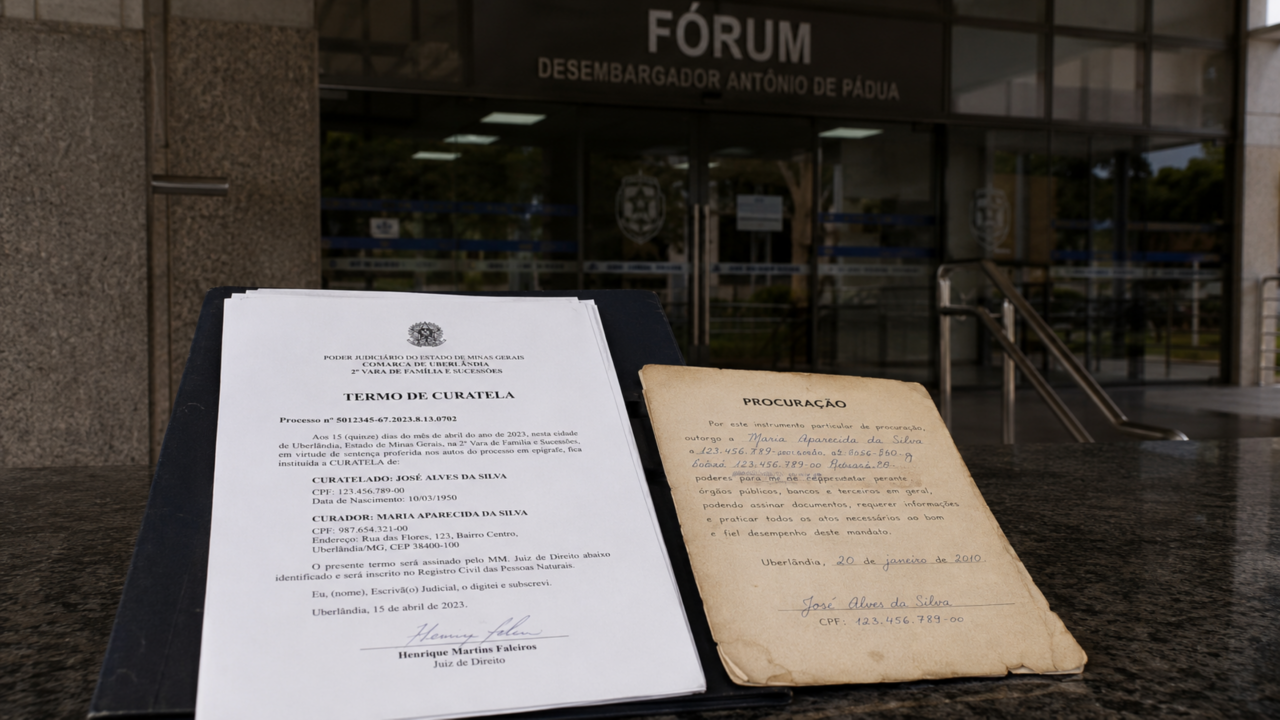 FÓRUM
DESEMBARGADOR ANTÔNIO DE PÁDUA
PODER JUDICIÁRIO DO ESTADO DE MINAS GERAIS
COMARCA DE UBERLÂNDIA
2ª VARA DE FAMÍLIA E SUCESSÕES
TERMO DE CURATELA
Processo nº 5012345-67.2023.8.13.0702
Aos 15 (quinze) dias do mês de abril do ano de 2023, nesta cidade
de Uberlândia, Estado de Minas Gerais, na 2ª Vara de Família e Sucessões,
em virtude de sentença proferida nos autos do processo em epígrafe, fica
instituída a CURATELA de:
CURATELADO: JOSÉ ALVES DA SILVA
CPF: 123.456.789-00
Data de Nascimento: 10/03/1950
CURADOR: MARIA APARECIDA DA SILVA
CPF: 987.654.321-00
Endereço: Rua das Flores, 123, Bairro Centro,
Uberlândia/MG, CEP 38400-100
O presente termo será assinado pelo MM. Juiz de Direito abaixo
identificado e será inscrito no Registro Civil das Pessoas Naturais.
Eu, (nome), Escrivã(o) Judicial, o digitei e subscrevi.
Uberlândia, 15 de abril de 2023.
Henrique Martins Faleiros
Juiz de Direito
PROCURAÇÃO
Por este instrumento particular de procuração,
outorgo a Maria Aparecida da Silva
123.456.789-
123.456.789-00
poderes para me perante
órgãos públicos, bancos e terceiros em geral,
podendo assinar documentos, requerer informações
e praticar todos os atos necessários ao bom
e fiel desempenho deste mandato.
Uberlândia, 20 de janeiro de 2010.
José Alves da Silva
CPF: 123.456.789-00